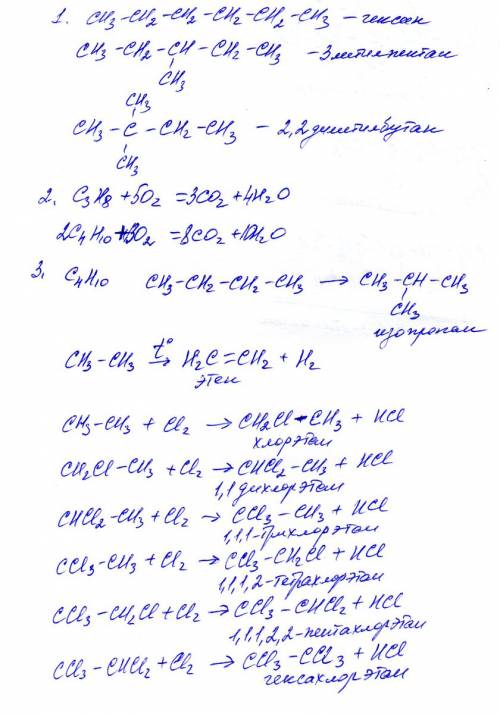 1. CH3-CH2-CH2-CH2-CH2-CH3 - гексан
CH3-CH2-CH-CH2-CH3 - 3метилпентан
CH3
CH3
CH3-C-CH2-CH3 - 2,2диметилбутан
CH3
2. C3H8 + 5O2 = 3CO2 + 4H2O
2C4H10 + 13O2 = 8CO2 + 10H2O
3. C4H10 CH3-CH2-CH2-CH3 → CH3-CH-CH3
CH3
изопропан
CH3-CH3 t° → H2C=CH2 + H2
этен
CH3-CH3 + Cl2 → CH2Cl-CH3 + HCl
хлорэтан
CH2Cl-CH3 + Cl2 → CHCl2-CH3 + HCl
1,1 дихлорэтан
CHCl2-CH3 + Cl2 → CCl3-CH3 + HCl
1,1,1-трихлорэтан
CCl3-CH3 + Cl2 → CCl3-CH2Cl + HCl
1,1,1,2-тетрахлорэтан
CCl3-CH2Cl + Cl2 → CCl3-CHCl2 + HCl
1,1,1,2,2-пентахлорэтан
CCl3-CHCl2 + Cl2 → CCl3-CCl3 + HCl
гексахлорэтан